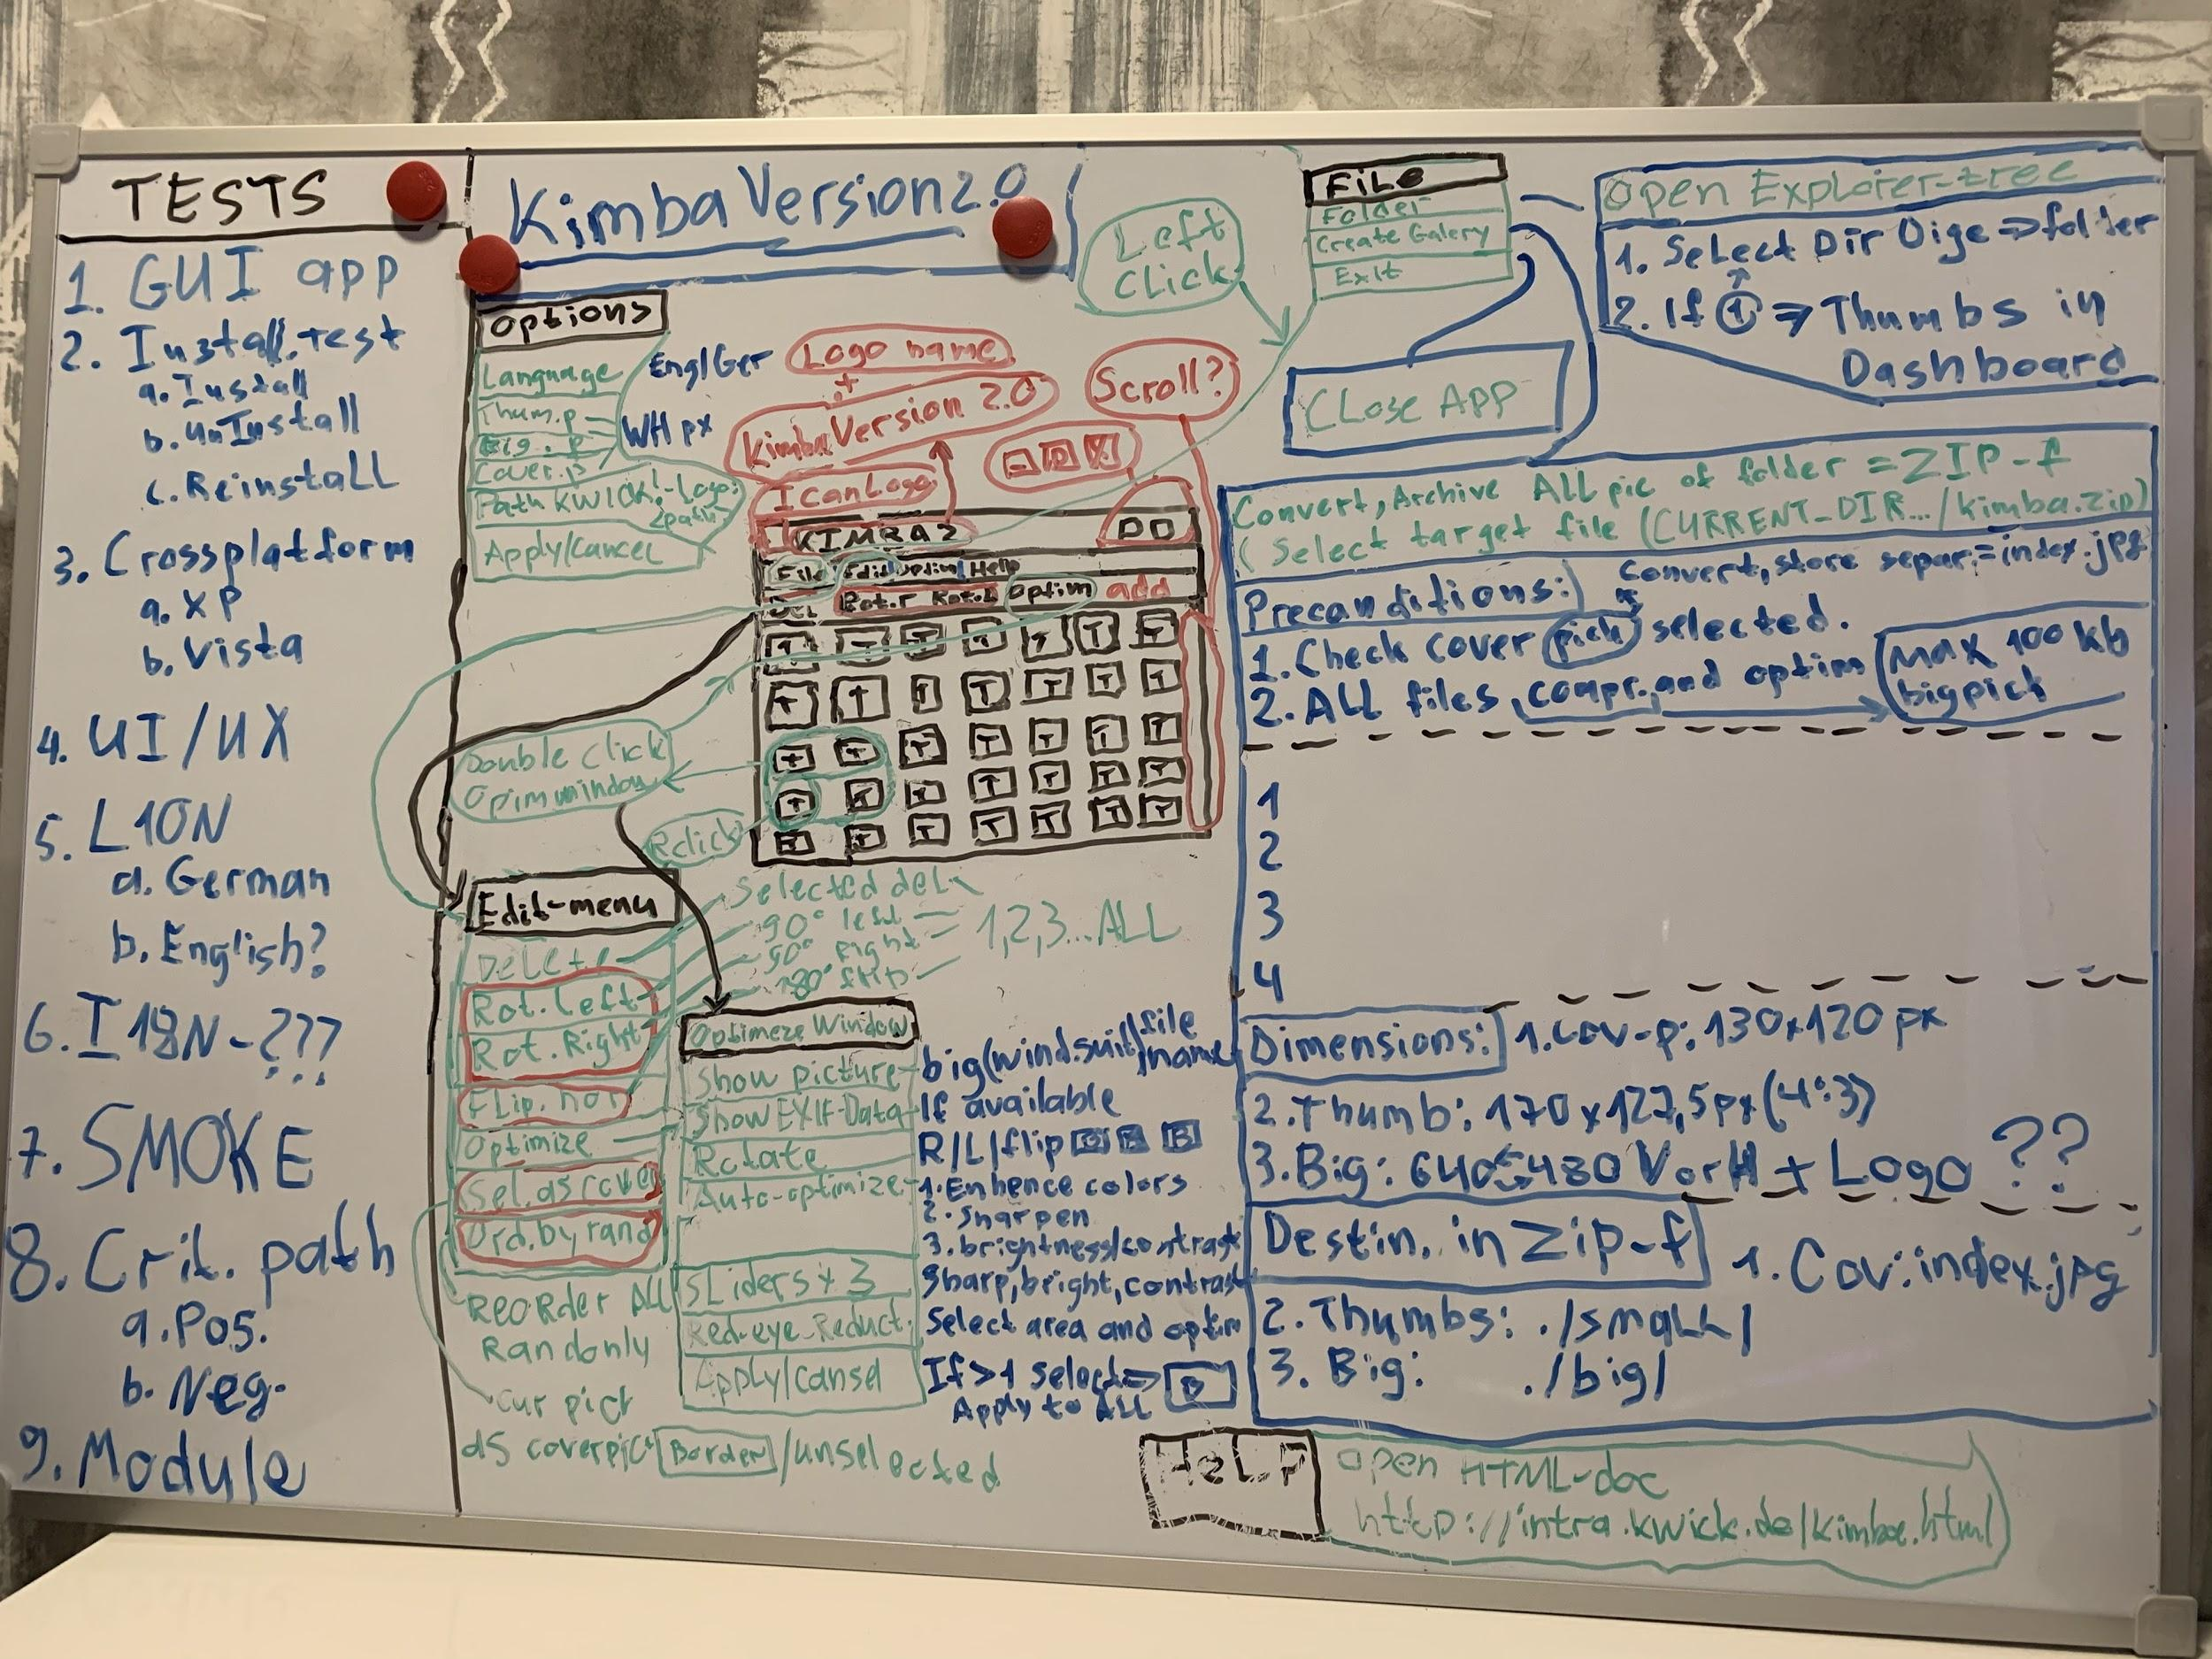 TESTS
1. GUI app
2. Install.test
a. Install
b. unInstall
c. Reinstall
3. Crossplatform
a. XP
b. Vista
4. UI/UX
5. L10N
a. German
b. English?
6. I18N-???
7. SMOKE
8. Crit. path
a. Pos.
b. Neg.
9. Module
Kimba Version 2.0
Options
Language
Eng/Ger
Thum.p
Big.p
WH px
Cover.p
Path KWICK!-Logo:
Apply/Cancel
Logo name
+
Kimba Version 2.0
Scroll?
Left
CLick
KIMBA 2
File Edit Optim Help
Del Rot.r Rot.L Optim add
Double click
Opimwindow
Rclick
Edit-menu
Delete
Rot. Left
Rot. Right
Flip. hor
Optimize
Sel. as cover
Ord. by rand
Selected del
90° left
90° right
180° flip
1,2,3...ALL
REORder ALL
Randonly
cur pict
as coverpict Border/unselected
Optimeze Window
Show picture
Show EXIF-Data
Rotate
Auto-optimize
SLiders x 3
Red-eye-Reduct.
Apply/cansel
big(wind.suit)/file name
If available
R/L/flip
1. Enhence colors
2. Sharpen
3. brightness/contrast
Sharp, bright, contrast
Select area and optim
If > 1 select =>
Apply to ALL
FiLe
Folder
Create Galery
Exit
Open Explorer-tree
1. SeLect Dir => folder
2. If 1 => Thumbs in
Dashboard
CLose APP
Convert, Archive ALL pic of folder = ZIP-f
(Select target file (CURRENT_DIR.../kimba.zip)
Preconditions:
convert, store separ.=index.jpg
1. Check cover pick selected.
2. ALL files, compr. and optim
Max 100 kb
bigpict
1
2
3
4
Dimensions:
1. Cov-p: 130x120 px
2. Thumb: 170x127,5px (4:3)
3. Big: 640 480 V or H + Logo ??
Destin. in Zip-f
1. Cov: index.jpg
2. Thumbs: ./smaLL/
3. Big: ./big/
HeLP
open HTML-doc
http://intra.kwick.de/kimba.html